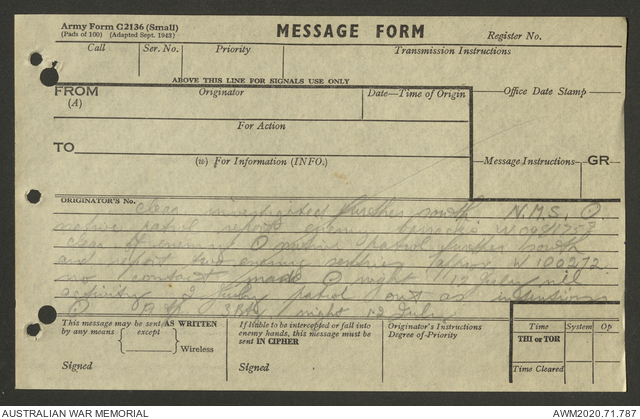 Army Form C2136 (Small)
(Pads of 100) (Adapted Sept. 1942)
MESSAGE FORM
Register No.
Call
Ser. No.
Priority
Transmission Instructions
ABOVE THIS LINE FOR SIGNALS USE ONLY
FROM
(A)
Originator
Date—Time of Origin
Office Date Stamp
For Action
TO
(w) For Information (INFO.)
Message Instructions
GR
ORIGINATOR'S No.
clear investigated further south N.M.S.
native patrol report
clear of enemy native patrol further south
and report two enemy W 100272
no contact made night 12 July nil
activity patrol out as intentions
night 12 July
This message may be sent AS WRITTEN
by any means except
Wireless
Signed
If liable to be intercepted or fall into
enemy hands, this message must be
sent IN CIPHER
Signed
Originator's Instructions
Degree of-Priority
Time
System
Op
THI or TOR
Time Cleared
AUSTRALIAN WAR MEMORIAL
AWM2020.71.787